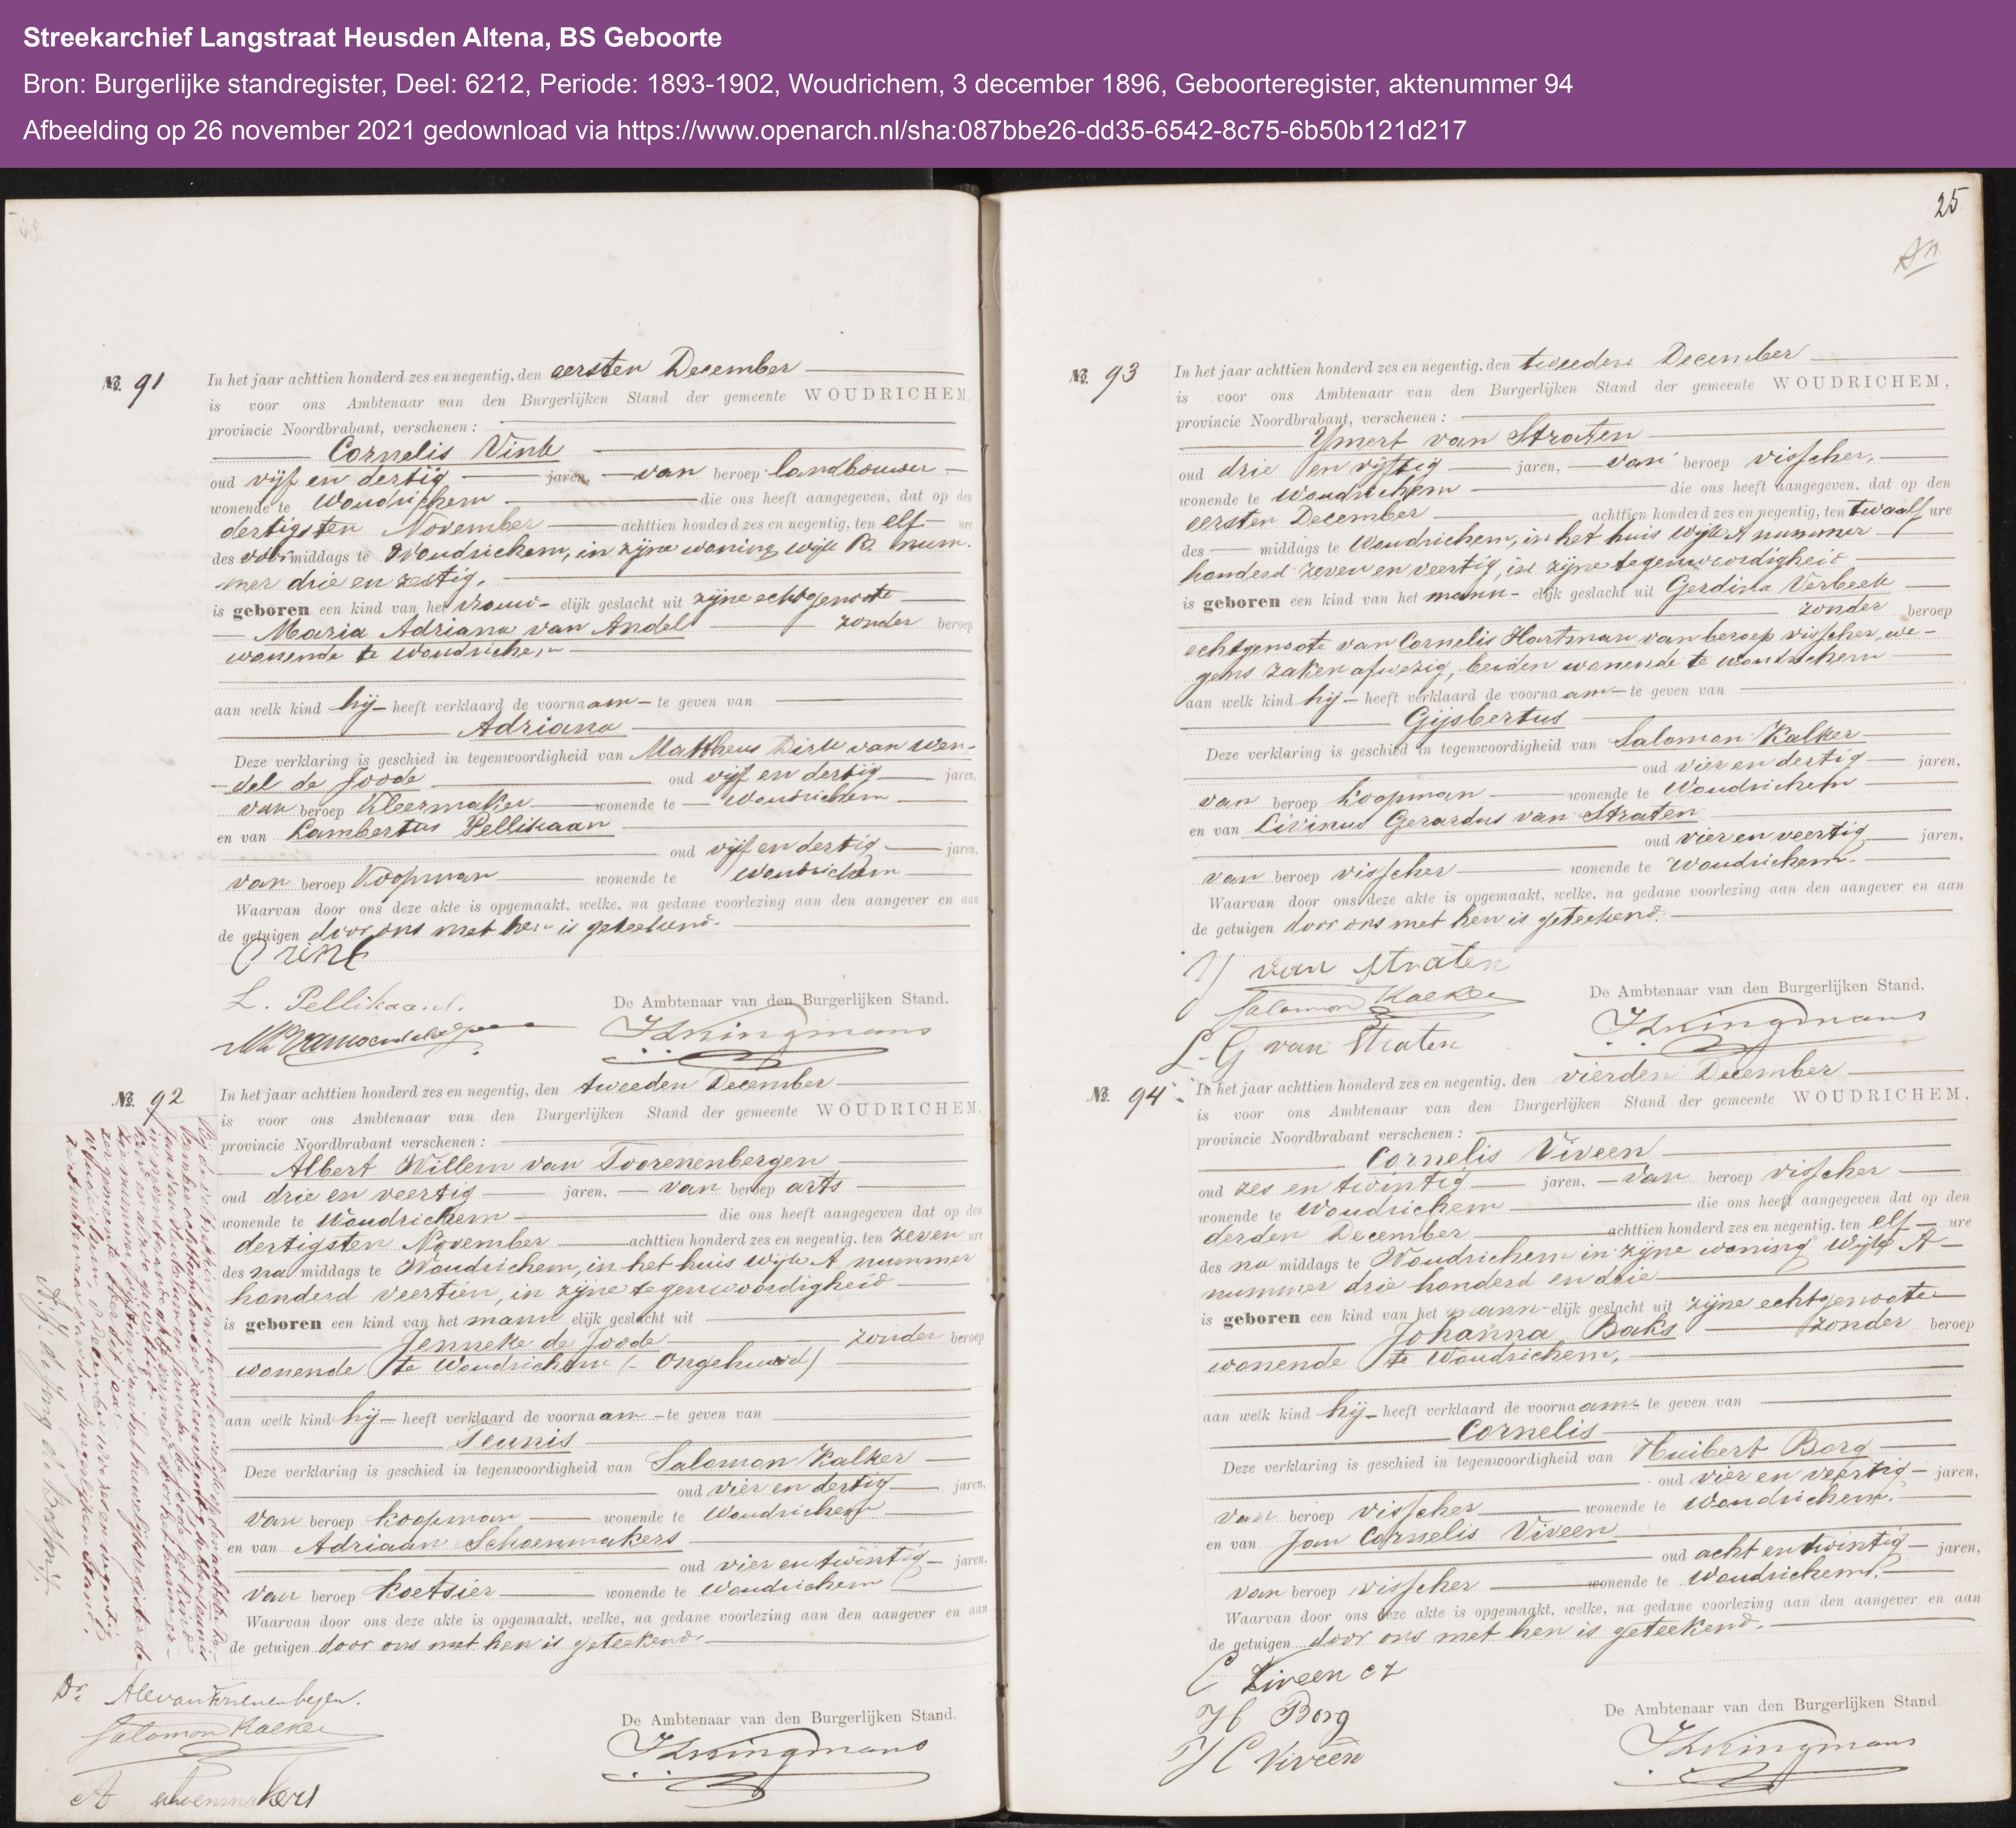 Streekarchief Langstraat Heusden Altena, BS Geboorte
Bron: Burgerlijke standregister, Deel: 6212, Periode: 1893-1902, Woudrichem, 3 december 1896, Geboorteregister, aktenummer 94
Afbeelding op 26 november 2021 gedownload via https://www.openarch.nl/sha:087bbe26-dd35-6542-8c75-6b50b121d217
No. 91
In het jaar achttien honderd zes en negentig, den eersten December
is voor ons Ambtenaar van den Burgerlijken Stand der gemeente WOUDRICHEM,
provincie Noordbrabant, verschenen:
Cornelis Vink
oud vijf en dertig jaren, van beroep landbouwer
wonende te Woudrichem die ons heeft aangegeven, dat op den
dertigsten November achttien honderd zes en negentig, ten elf ure
des voormiddags te Woudrichem, in zijne woning wijk B. num-
mer drie en zestig.
is geboren een kind van het vrouw- elijk geslacht uit zijne echtgenoote
Maria Adriana van Andel zonder beroep
wonende te Woudrichem
aan welk kind hij heeft verklaard de voornaam te geven van
Adriana
Deze verklaring is geschied in tegenwoordigheid van Mattheus Dirk van Wen-
del de Joode oud vijf en dertig jaren,
van beroep Kleermaker wonende te Woudrichem
en van Lambertus Pellikaan
oud vijf en dertig jaren,
van beroep Koopman wonende te Woudrichem
Waarvan door ons deze akte is opgemaakt, welke, na gedane voorlezing aan den aangever en aan
de getuigen door ons met hen is geteekend.
C Vink
L. Pellikaan.
De Ambtenaar van den Burgerlijken Stand.
No. 92
In het jaar achttien honderd zes en negentig, den tweeden December
is voor ons Ambtenaar van den Burgerlijken Stand der gemeente WOUDRICHEM,
provincie Noordbrabant verschenen:
Albert Willem van Toorenenbergen
oud drie en veertig jaren, van beroep arts
wonende te Woudrichem die ons heeft aangegeven dat op den
dertigsten November achttien honderd zes en negentig, ten zeven ure
des na middags te Woudrichem, in het huis wijk A nummer
honderd veertien, in zijne tegenwoordigheid
is geboren een kind van het mann elijk geslacht uit
Jenneke de Joode zonder beroep
wonende te Woudrichem (ongehuwd)
aan welk kind hij heeft verklaard de voornaam te geven van
Teunis
Deze verklaring is geschied in tegenwoordigheid van Salomon Kalker
oud vier en dertig jaren,
van beroep koopman wonende te Woudrichem
en van Adriaan Schoenmakers
oud vier en twintig jaren,
van beroep Koetsier wonende te Woudrichem
Waarvan door ons deze akte is opgemaakt, welke, na gedane voorlezing aan den aangever en aan
de getuigen door ons met hen is geteekend.
Salomon Kalker
A schoenmakers
De Ambtenaar van den Burgerlijken Stand.
25
No. 93
In het jaar achttien honderd zes en negentig, den tweeden December
is voor ons Ambtenaar van den Burgerlijken Stand der gemeente WOUDRICHEM,
provincie Noordbrabant, verschenen:
Ymert van Straten
oud drie en vijftig jaren, van beroep visscher,
wonende te Woudrichem die ons heeft aangegeven, dat op den
eersten December achttien honderd zes en negentig, ten twaalf ure
des middags te Woudrichem, in het huis wijk A nummer
honderd zeven en veertig, in zijne tegenwoordigheid
is geboren een kind van het mann- elijk geslacht uit Gerdina Verbeek
zonder beroep
echtgenoote van Cornelis Hartman van beroep visscher, we-
gens zaken afwezig, beiden wonende te Woudrichem
aan welk kind hij heeft verklaard de voornaam te geven van
Gijsbertus
Deze verklaring is geschied in tegenwoordigheid van Salomon Kalker
oud vier en dertig jaren,
van beroep koopman wonende te Woudrichem
en van Livinus Gerardus van Straten
oud vier en veertig jaren,
van beroep visscher wonende te Woudrichem.
Waarvan door ons deze akte is opgemaakt, welke, na gedane voorlezing aan den aangever en aan
de getuigen door ons met hen is geteekend.
Y van Straten
Salomon Kalker
L. G van Straten
De Ambtenaar van den Burgerlijken Stand.
No. 94
In het jaar achttien honderd zes en negentig, den vierden December
is voor ons Ambtenaar van den Burgerlijken Stand der gemeente WOUDRICHEM,
provincie Noordbrabant verschenen:
Cornelis Viveen
oud zes en twintig jaren, van beroep visscher
wonende te Woudrichem die ons heeft aangegeven dat op den
derden December achttien honderd zes en negentig, ten elf ure
des na middags te Woudrichem in zijne woning Wijk A
nummer drie honderd en drie
is geboren een kind van het mann-elijk geslacht uit zijne echtgenoote
Johanna Baks zonder beroep
wonende te Woudrichem,
aan welk kind hij heeft verklaard de voornaam te geven van
Cornelis
Deze verklaring is geschied in tegenwoordigheid van Huibert Borg
oud vier en veertig jaren,
van beroep visscher wonende te Woudrichem.
en van Jan Cornelis Viveen
oud acht en twintig jaren,
van beroep visscher wonende te Woudrichem.
Waarvan door ons deze akte is opgemaakt, welke, na gedane voorlezing aan den aangever en aan
de getuigen door ons met hen is geteekend.
C Viveen cz
H Borg
J C Viveen
De Ambtenaar van den Burgerlijken Stand.